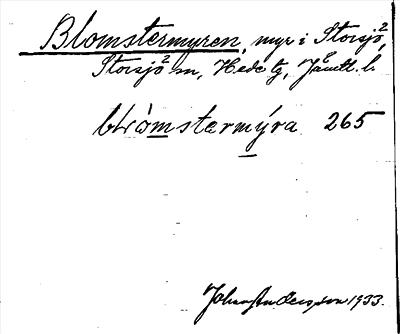 Blomstermyren, myr i Storsjö,
Storsjö sn, Hede tg, Jämtl. l.
blòmstermýra 265
Johan Andersson 1933.